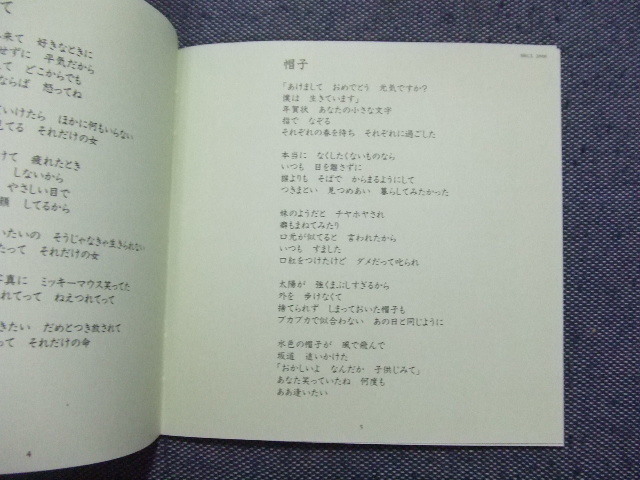 て
来て　好きなときに
せずに　平気だから
て　どこからでも
ならば　怒ってね
いけたら　ほかに何もいらない
してる　それだけの女
けて　疲れたとき
しないから
やさしい目で
顔　してるから
いたいの　そうじゃなきゃ生きられない
たって　それだけの女
写真に　ミッキーマウス笑ってた
れてって　ねえつれてって
きたい　だめとつき放されて
って　それだけの命
4
帽子
「あけまして　おめでとう　元気ですか?
僕は　生きています」
年賀状　あなたの小さな文字
指で　なぞる
それぞれの春を待ち　それぞれに過ごした
本当に　なくしたくないものなら
いつも　目を離さずに
誰よりも　そばで　からまるようにして
つきまとい　見つめあい　暮らしてみたかった
妹のようだと　チヤホヤされ
癖もまねてみたり
口元が似てると　言われたから
いつも　すました
口紅をつけたけど　ダメだって叱られ
太陽が　強くまぶしすぎるから
外を　歩けなくて
捨てられず　しまっておいた帽子も
ブカブカで似合わない　あの日と同じように
水色の帽子が　風で飛んで
坂道　追いかけた
「おかしいよ　なんだか　子供じみて」
あなた笑っていたね　何度も
ああ逢いたい
5